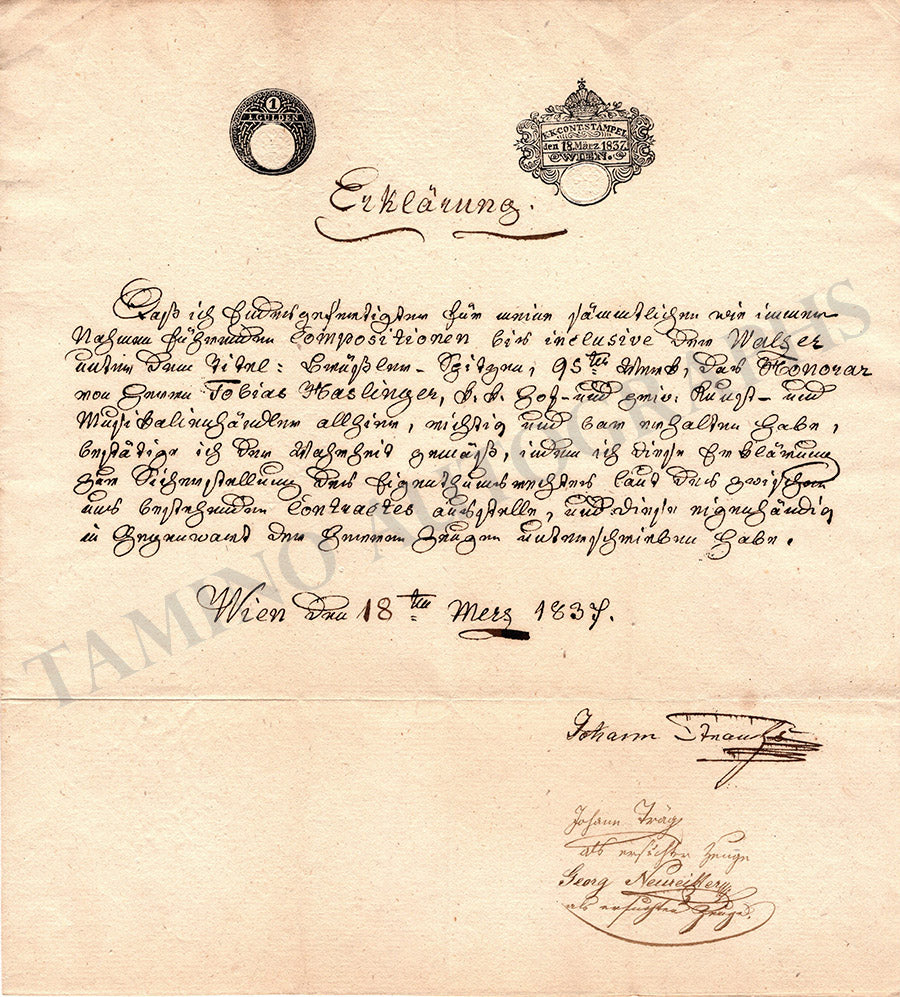 1
1. GULDEN
K.K.CONT.STÄMPEL
den 18. März 1837.
WIEN.
Erklärung.
Daß ich Endesgefertigter für meine sämmtlichen wie immer
Nahmen führenden Compositionen bis inclusive der Walzer
unter dem Titel: Brüßler-Spitzen, 95ten Werk, das Honorar
von Herrn Tobias Haslinger, k. k. Hof- und priv: Kunst- und
Musikalienhändler allhier, richtig und bar erhalten habe,
bestätige ich der Wahrheit gemäß, indem ich diese Erklärung
zur Sicherstellung des Eigenthumsrechtes laut des zwischen
uns bestehenden Contractes ausstelle, und diese eigenhändig
in Gegenwart der Herren Zeugen unterschrieben habe.
Wien den 18ten Merz 1837.
Johann Strauß
Johann Träg
als ersuchter Zeuge
Georg
als ersuchter Zeuge.
TAMINO AUTOGRAPHS